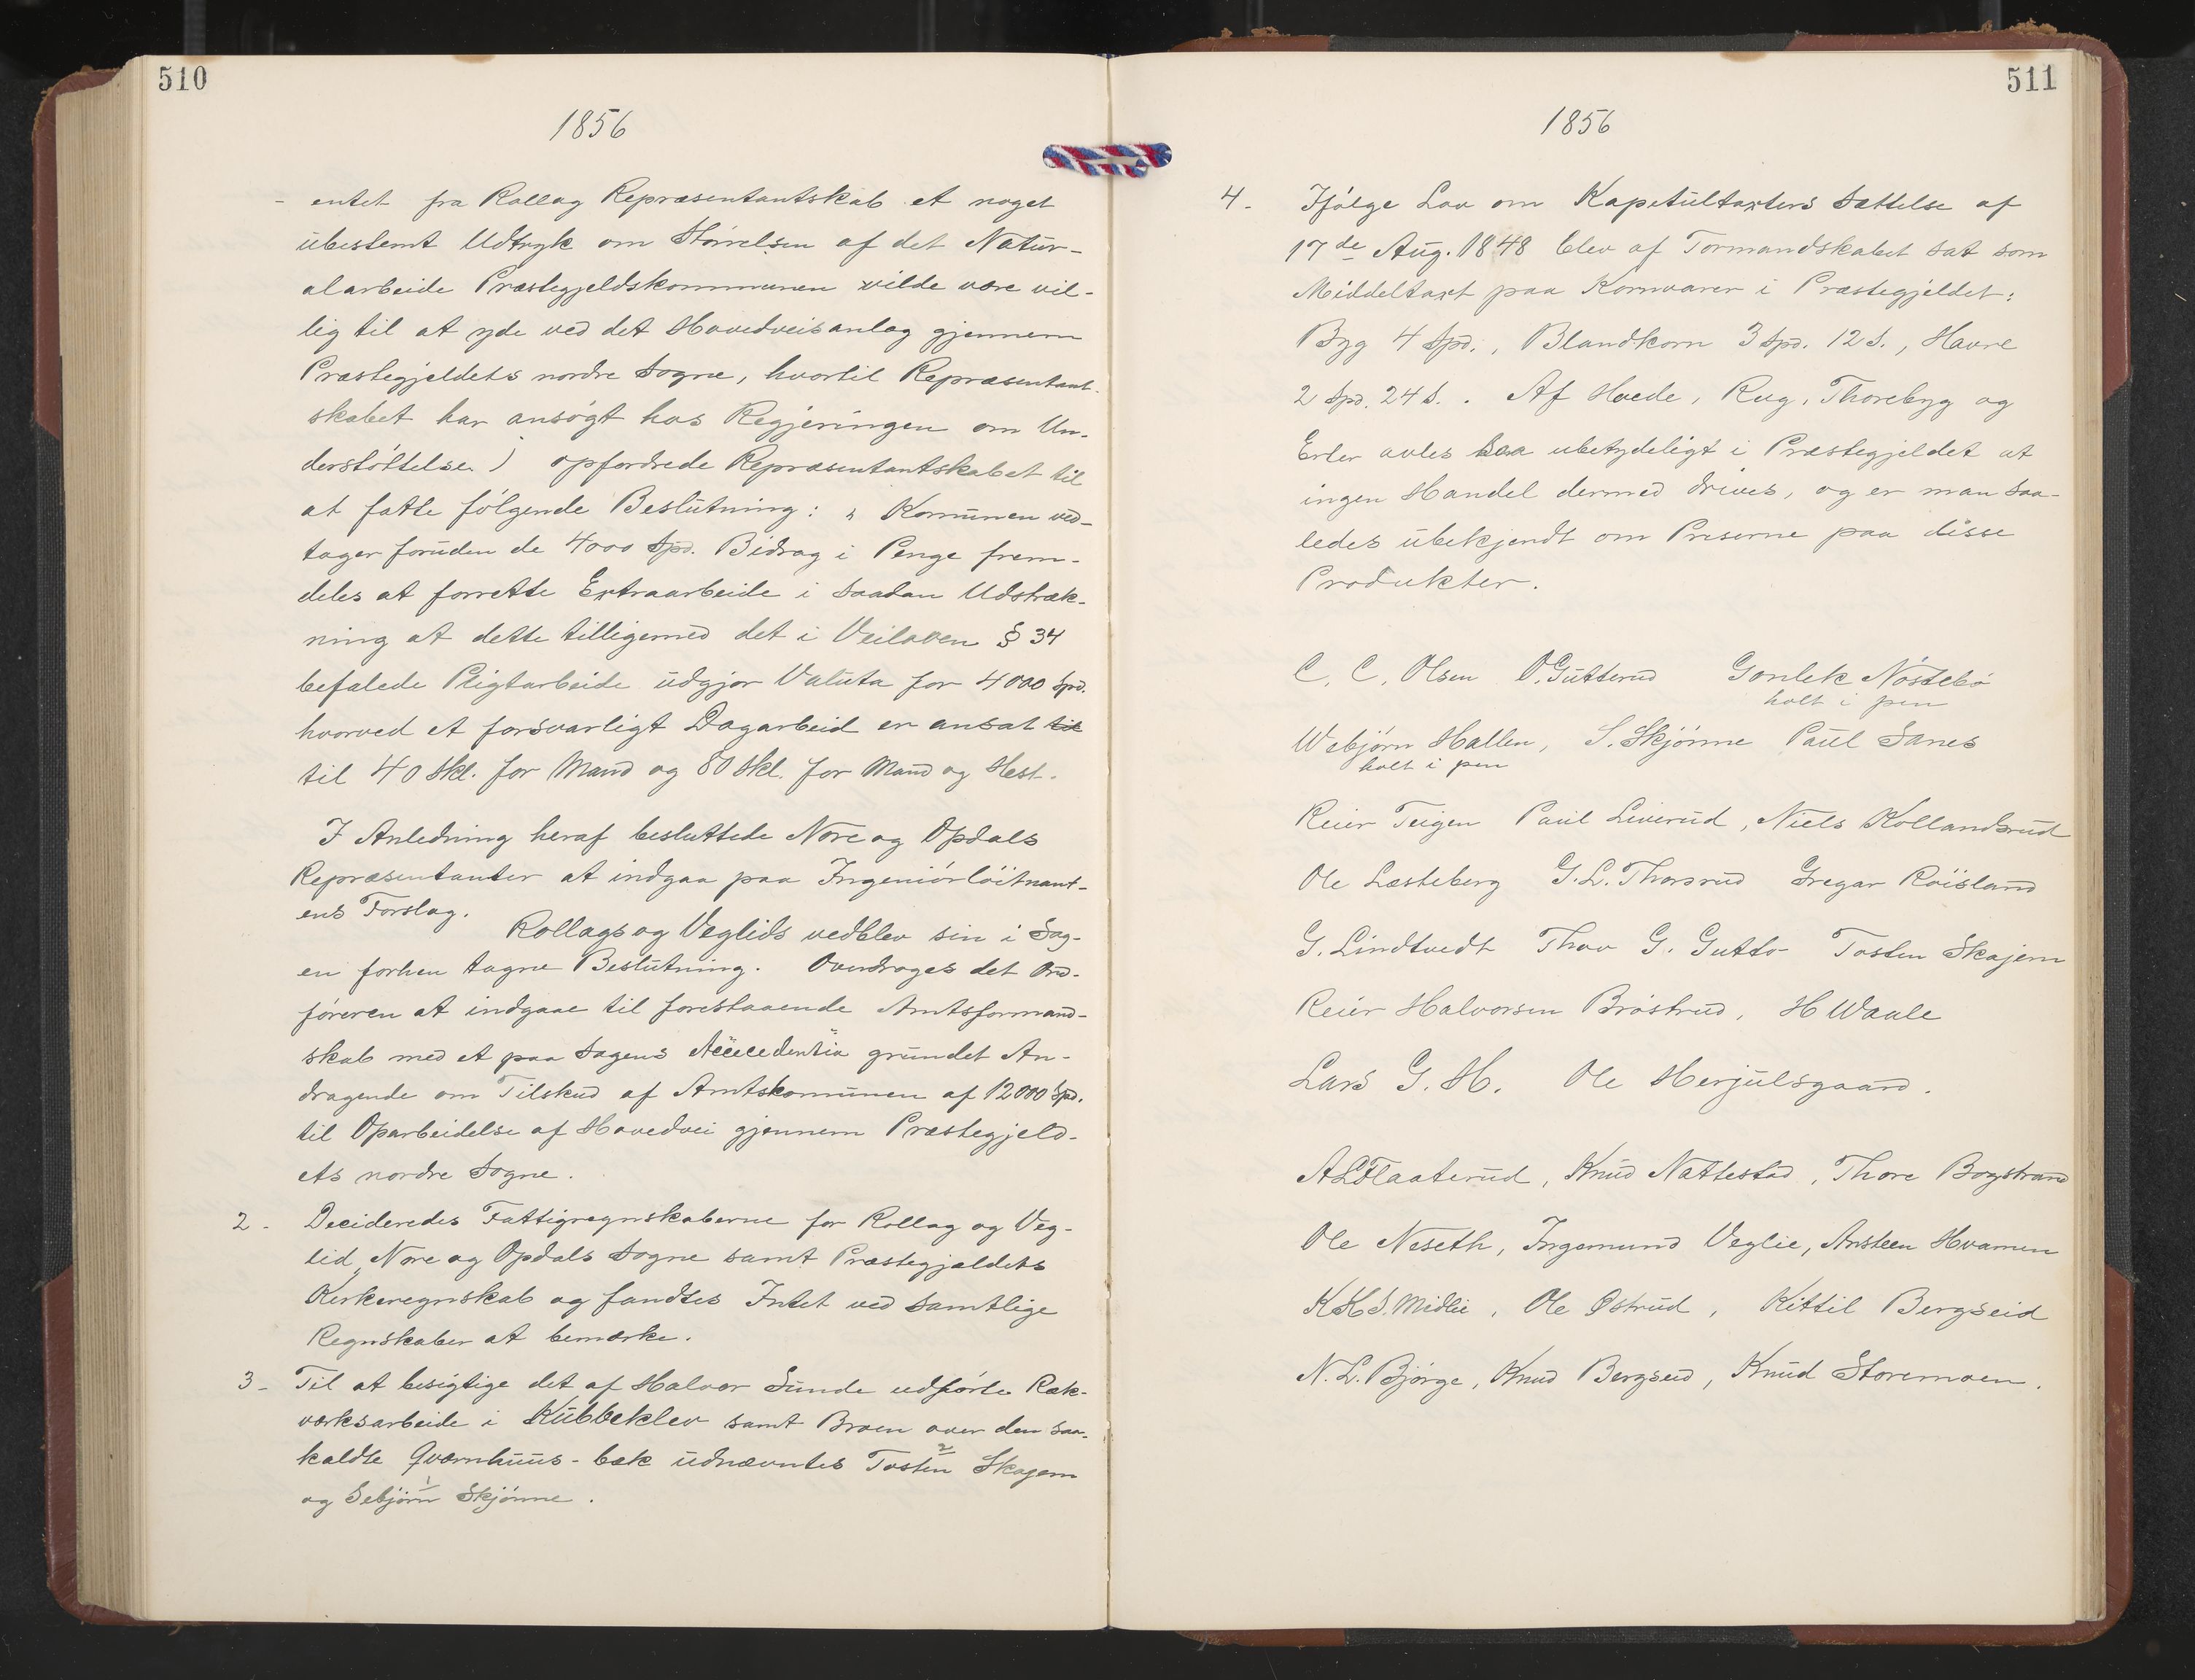 510
1856
- entet fra Rollag Repræsentantskab et noget
ubestemt Udtryk om Størrelsen af det Natur-
alarbeide Præstegjeldskommunen vilde være vil-
lig til at yde ved det Hovedveisanlæg gjennem
Præstegjeldets nordre Sogne, hvortil Repræsentant-
skabet har ansøgt hos Regjeringen om Un-
derstøttelse.) opfordrede Repræsentantskabet til
at fatte følgende Beslutning: „ Komunen ved-
tager foruden de 4000 Spd. Bidrag i Penge frem-
deles at forrette Extraarbeide i saadan Udstræk-
ning at dette tilligemed det i Veiloven § 34
befalede Pligtarbeide udgjør Valuta for 4000 Spd.
hvorved et forsvarligt Dagarbeid er ansat til
til 40 Skl. for Mand og 80 Skl. for Mand og Hest.
I Anledning heraf besluttede Nore og Opdals
Repræsentanter at indgaa paa Ingeniørløitnant-
ens Forslag.
Rollags og Veglids vedblev sin i Sag-
en forhen tagne Beslutning. Overdroges det Ord-
føreren at indgaae til forestaaende Amtsformand-
skab med et paa Sagens grundet An-
dragende om Tilskud af Amtskomunen af 12000 Spd.
til Oparbeidelse af Hovedvei gjennem Præstegjeld-
ets nordre Sogne.
2 - Decideredes Fattigregnskaberne for Rollag og Veg-
lid, Nore og Opdals Sogne samt Præstegjældets
Kirkeregnskab og fandtes Intet ved samtlige
Regnskaber at bemærke.
3 - Til at besigtige det af Halvor Sunde udførte Ræk-
værksarbeide i Kübbeklev samt Broen over den saa-
kaldte Qværnhuus-bæk udnævntes Tosten 2 Skajem
og Sebjørn 1 Skjønne.
511
1856
4 - Ifølge Lov om Kapitultaxters Sættelse af
17de Aug. 1848 blev af Formandskabet sat som
Middeltaxt paa Kornvarer i Præstegjeldet:
Byg 4 Spd., Blandkorn 3 Spd. 12 S., Havre
2 Spd. 24 S.. Af Hvede, Rug, Thorebyg og
Erter avles saa ubetydeligt i Præstegjeldet at
ingen Handel dermed drives, og er man saa-
ledes ubekjendt om Priserne paa disse
Produkter.
C. C. Olsen O. Gutterud Gonlek Nøstebø
holt i pen
Webjørn Hallen, S. Skjønne Paul Sanes
holt i pen
Reier Teigen Paul Liverud, Niels Kollandsrud
Ole Læsteberg G. L. Thorsrud Gregar Røisland
G. Lindtvedt Thov G. Gutto Tosten Skajem
Reier Halvorsen Brøstrud, H Waale
Lars G. H. Ole Herjulsgaard.
A L Flaaterud, Knud Nattestad, Thore Bogstrand
Ole Neseth, Ingemund Veglie, Ansteen Hvamen
K H S. Midlie, Ole Østrud, Kittil Bergseid
N. L. Bjørge, Knud Bergseid, Knud Storemoen.